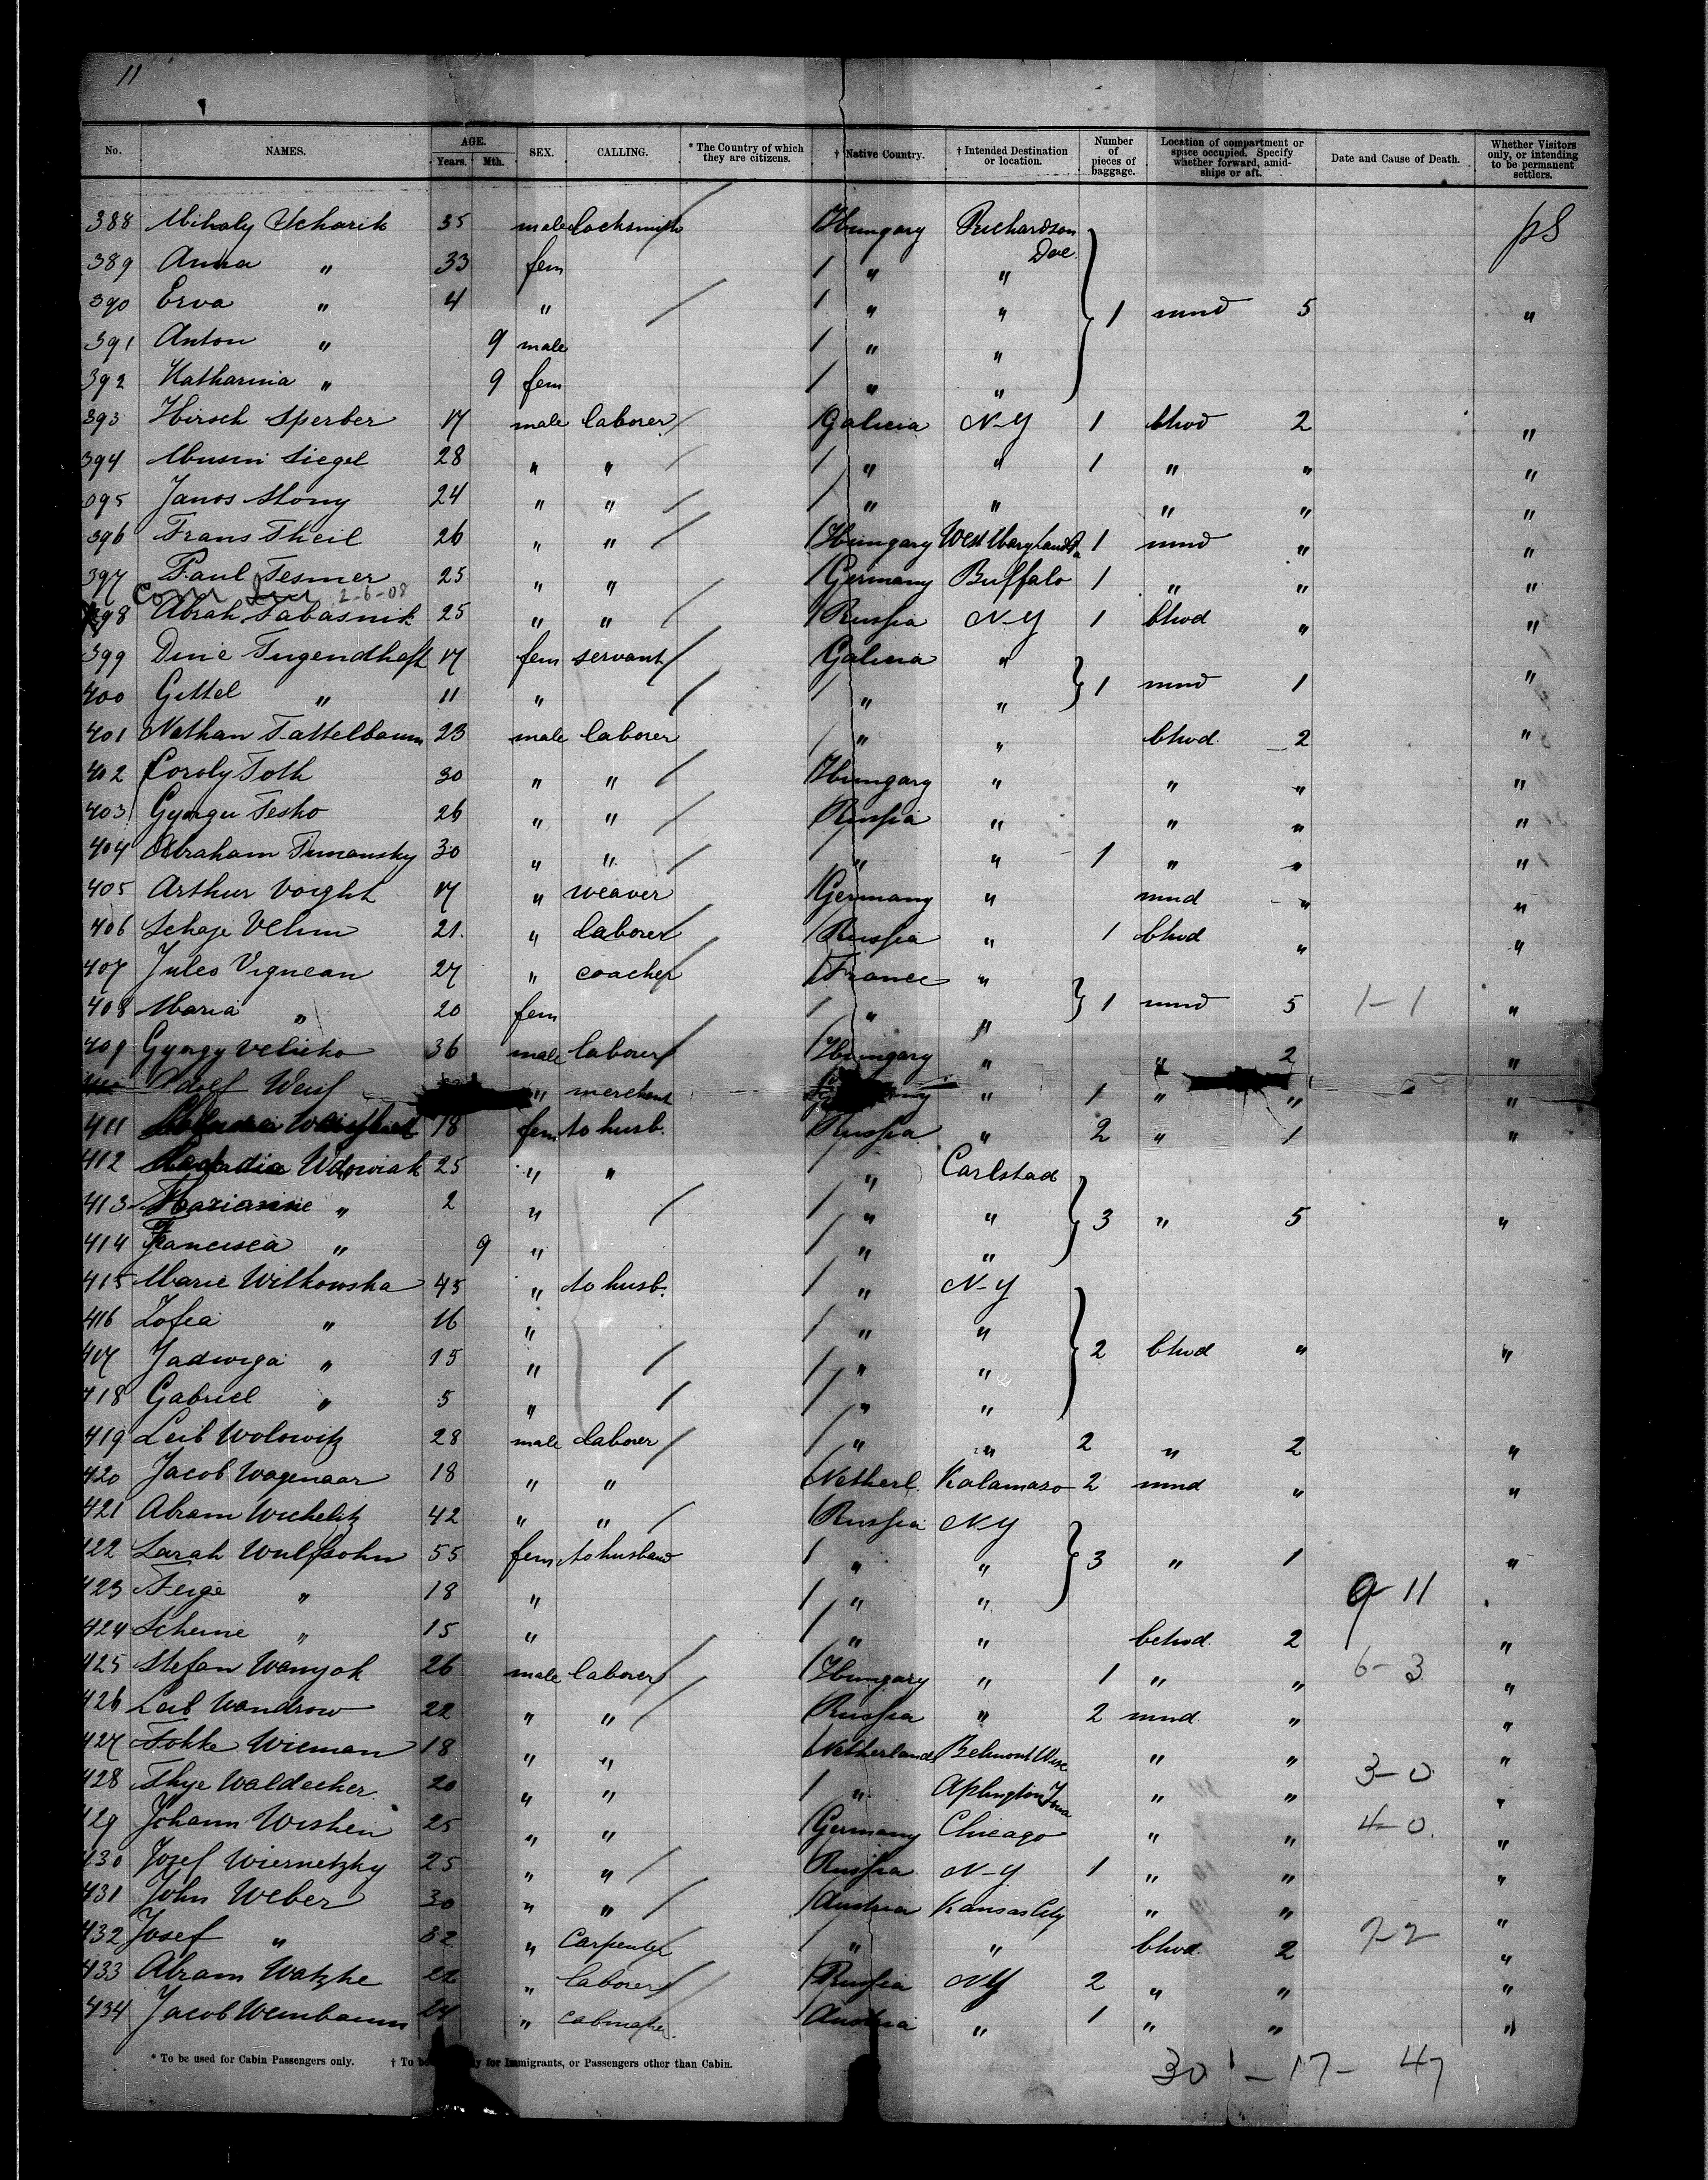 11
No. NAMES. AGE. Years. Mth. SEX. CALLING. * The Country of which they are citizens. † Native Country. † Intended Destination or location. Number of pieces of baggage. Location of compartment or space occupied. Specify whether forward, amidships or aft. Date and Cause of Death. Whether Visitors only, or intending to be permanent settlers.
388 Mihaly Scharik 35 male locksmith Hungary Richardson pS
389 Anna " 33 fem " "
390 Erva " 4 " " " 1 mnd 5 "
391 Anton " 9 male " "
392 Katharina " 9 fem " "
393 Hirsch Sperber 17 male laborer Galicia N-Y 1 bhwd 2 "
394 Siegel 28 " " " " 1 " " "
395 Janos Stony 24 " " " " " " "
396 Frans Theil 26 " " Hungary West 1 mnd " "
397 Paul Tesmer 25 " " Germany Buffalo 1 " " "
2-6-08
398 Abrah Tabasnik 25 " " Russia N-Y 1 bhwd " "
399 Dine Tugendhaft 17 fem servant Galicia "
400 Gittel " 11 " " " 1 mnd 1 "
401 Nathan Tattelbaum 23 male laborer " " bhwd 2 "
402 Coroly Toth 30 " " Hungary " " " "
403 Gyorgu Tesko 26 " " Russia " " " "
404 Abraham Tumansky 30 " " " " 1 " " "
405 Arthur Voight 17 " weaver Germany " mnd " "
406 Schaje Velim 21 " laborer Russia " 1 bhwd " "
407 Jules Vignean 27 " coacher France "
408 Maria " 20 fem " " 1 mnd 5 1-1 "
409 Gyorgy Velicko 36 male laborer Hungary " " 2 "
Adolf Weis " merchant " 1 " " "
411 18 fem to husb. Russia " 2 " 1 "
412 Wdowiak 25 " " " Carlstad
413 Marianne " 2 " " " 3 " 5 "
414 Francisca " 9 " " "
415 Marie Witkowska 45 " to husb. " N-Y
416 Zofia " 16 " " "
417 Jadwiga " 15 " " " 2 bhwd " "
418 Gabriel " 5 " " "
419 Leib Wolowitz 28 male laborer " " 2 " 2 "
420 Jacob Wagenaar 18 " " Netherl. Kalamaso 2 mnd " "
421 Abram Wichelitz 42 " " Russia N-Y
422 Sarah Wulfsohn 55 fem to husband " " 3 " 1 "
423 Feige " 18 " " " 9-11
424 Scheine " 15 " " " behwd. 2 "
425 Stefan Wanyok 26 male laborer Hungary " 1 " " 6-3 "
426 Leib Wandrow 22 " " Russia " 2 mnd " "
427 Fokke Wieman 18 " " Netherland Belmont Wisc " " "
428 Thye Waldecker 20 " " " Aplington Iowa " " 3-0 "
429 Johann Wishen 25 " " Germany Chicago " " 4-0 "
430 Josef Wiernetzky 25 " " Russia N-Y 1 " " "
431 John Weber 30 " " Austria Kansas City " " "
432 Josef " 32 " Carpenter " " bhwd. 2 "
433 Abram Watzke 22 " laborer Russia N-Y 2 " " "
434 Jacob Weinbaum 24 " cabmaker. Austria " 1 " " "
* To be used for Cabin Passengers only. † To be for Immigrants, or Passengers other than Cabin.
30 - 17 - 47